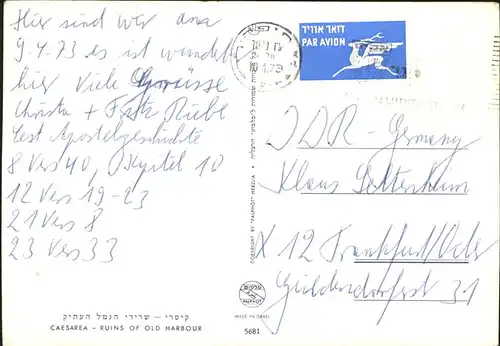 Hier sind wir am
9.4.73 es ist wunderbar
hier Viele Grüsse
Christa + Fritz
Lest Apostelgeschichte
8 Vers 40, Kapitel 10
12 Vers 19-23
21 Vers 8
23 Vers 33
קיסרי – שרידי הנמל העתיק
CAESAREA - RUINS OF OLD HARBOUR
COPYRIGHT BY "PALPHOT" HERZLIA
PALPHOT
MADE IN ISRAEL
5681
דואר אוויר
PAR AVION
DDR - Germany
Klaus
X 12 Frankfurt/Oder
31